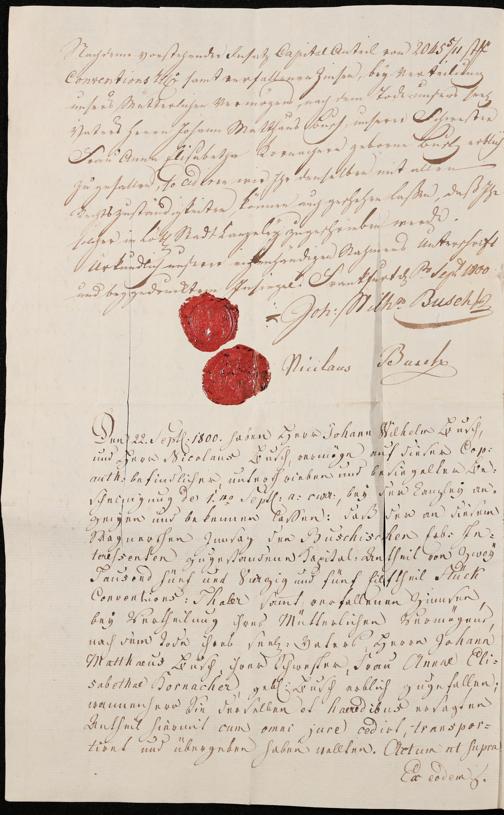 Nachdeme vorstehender Insatz Capital Anteil von 2045 5/11 stk
Conventions samt verfallenen Zinsen, bey Verteilung
unsers Mütterlichen Vermögens, nach dem Tode unsers seel.
Vaters Herrn Johann Matthäus Busch, unserer Schwester
Frau Anna Elisabetha Kornacher gebohrne Busch erblich
zugefallen, so cediren wir Ihr denselben mit allen
Rechtszuständigkeiten, können auch geschehen lassen, daß Ihr
selber in Stadt Canzley zugeschrieben werde.
Urkundlich unserer eigenhändigen Nahmens Unterschrift
und beygedrucktem Insiegel. Frankfurt d. Sept 1800.
Joh: Wilhm Busch
Nicolaus Busch
Den 22. Sept. 1800. haben Herr Johann Wilhelm Busch,
und Herr Nicolaus Busch, vermöge auf dieser
befindlicher, unterschrieben und besiegelten Be-
scheinigung de Sept: a: curr: bey der Canzley an-
zeigen und bekennen lassen: daß der an diesem
Wagnerschen Insatz den Buschischen In-
teressenten zugestandene Capital-Antheil von Zwey
Tausend fünf und Vierzig und fünf Eilftheil Stück
Conventions-Thaler samt verfallenen Zinnsen,
bey Vertheilung ihres Mütterlichen Vermögens,
nach dem Tode ihres seel: Vaters Herrn Johann
Matthaeus Busch, ihrer Schwester, Frau Annae Eli-
sabethae Kornacher, geb: Busch erblich zugefallen;
wannenhero Sie derselben et Haeredibus ersagten
Antheil hiermit cum omni jure cedirt, transpor-
tirt und übergeben haben wollten. Actum ut supra
Ex eodem